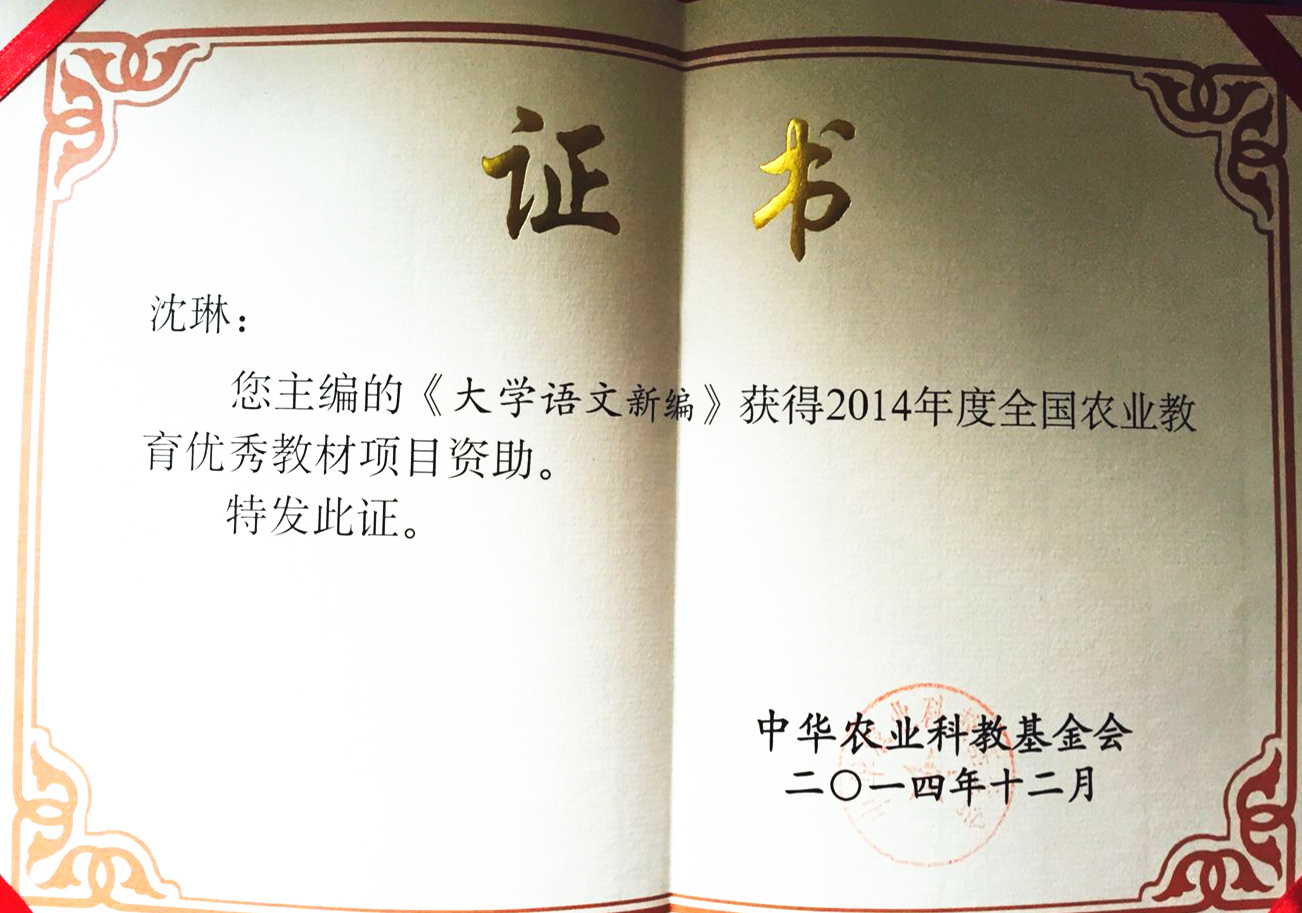 证书
沈琳：
您主编的《大学语文新编》获得2014年度全国农业教
育优秀教材项目资助。
特发此证。
中华农业科教基金会
二〇一四年十二月